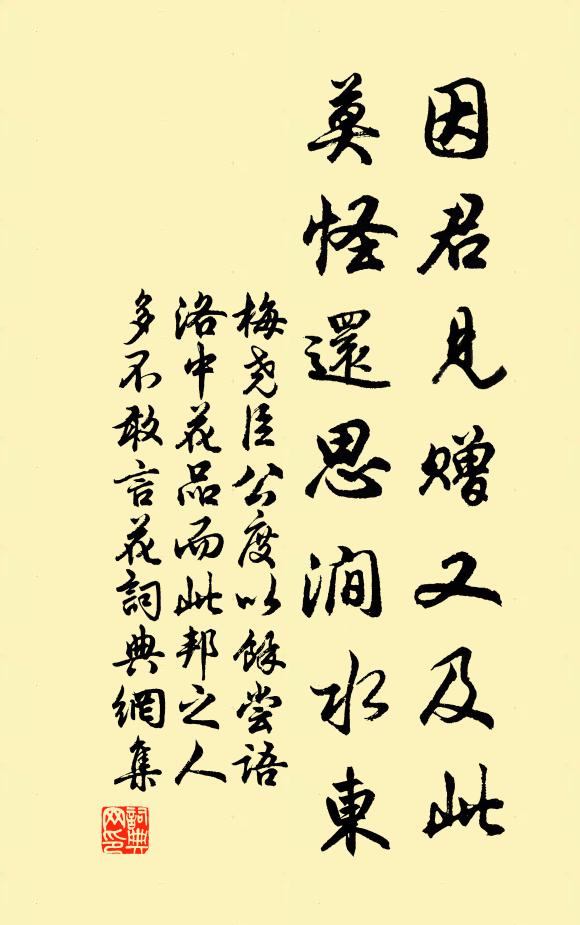 因君見赠又及此
莫怪還思澗水東
梅尧臣公度以餘嘗語
洛中花品而此邦之人
多不敢言花詞典網集
詞典网印